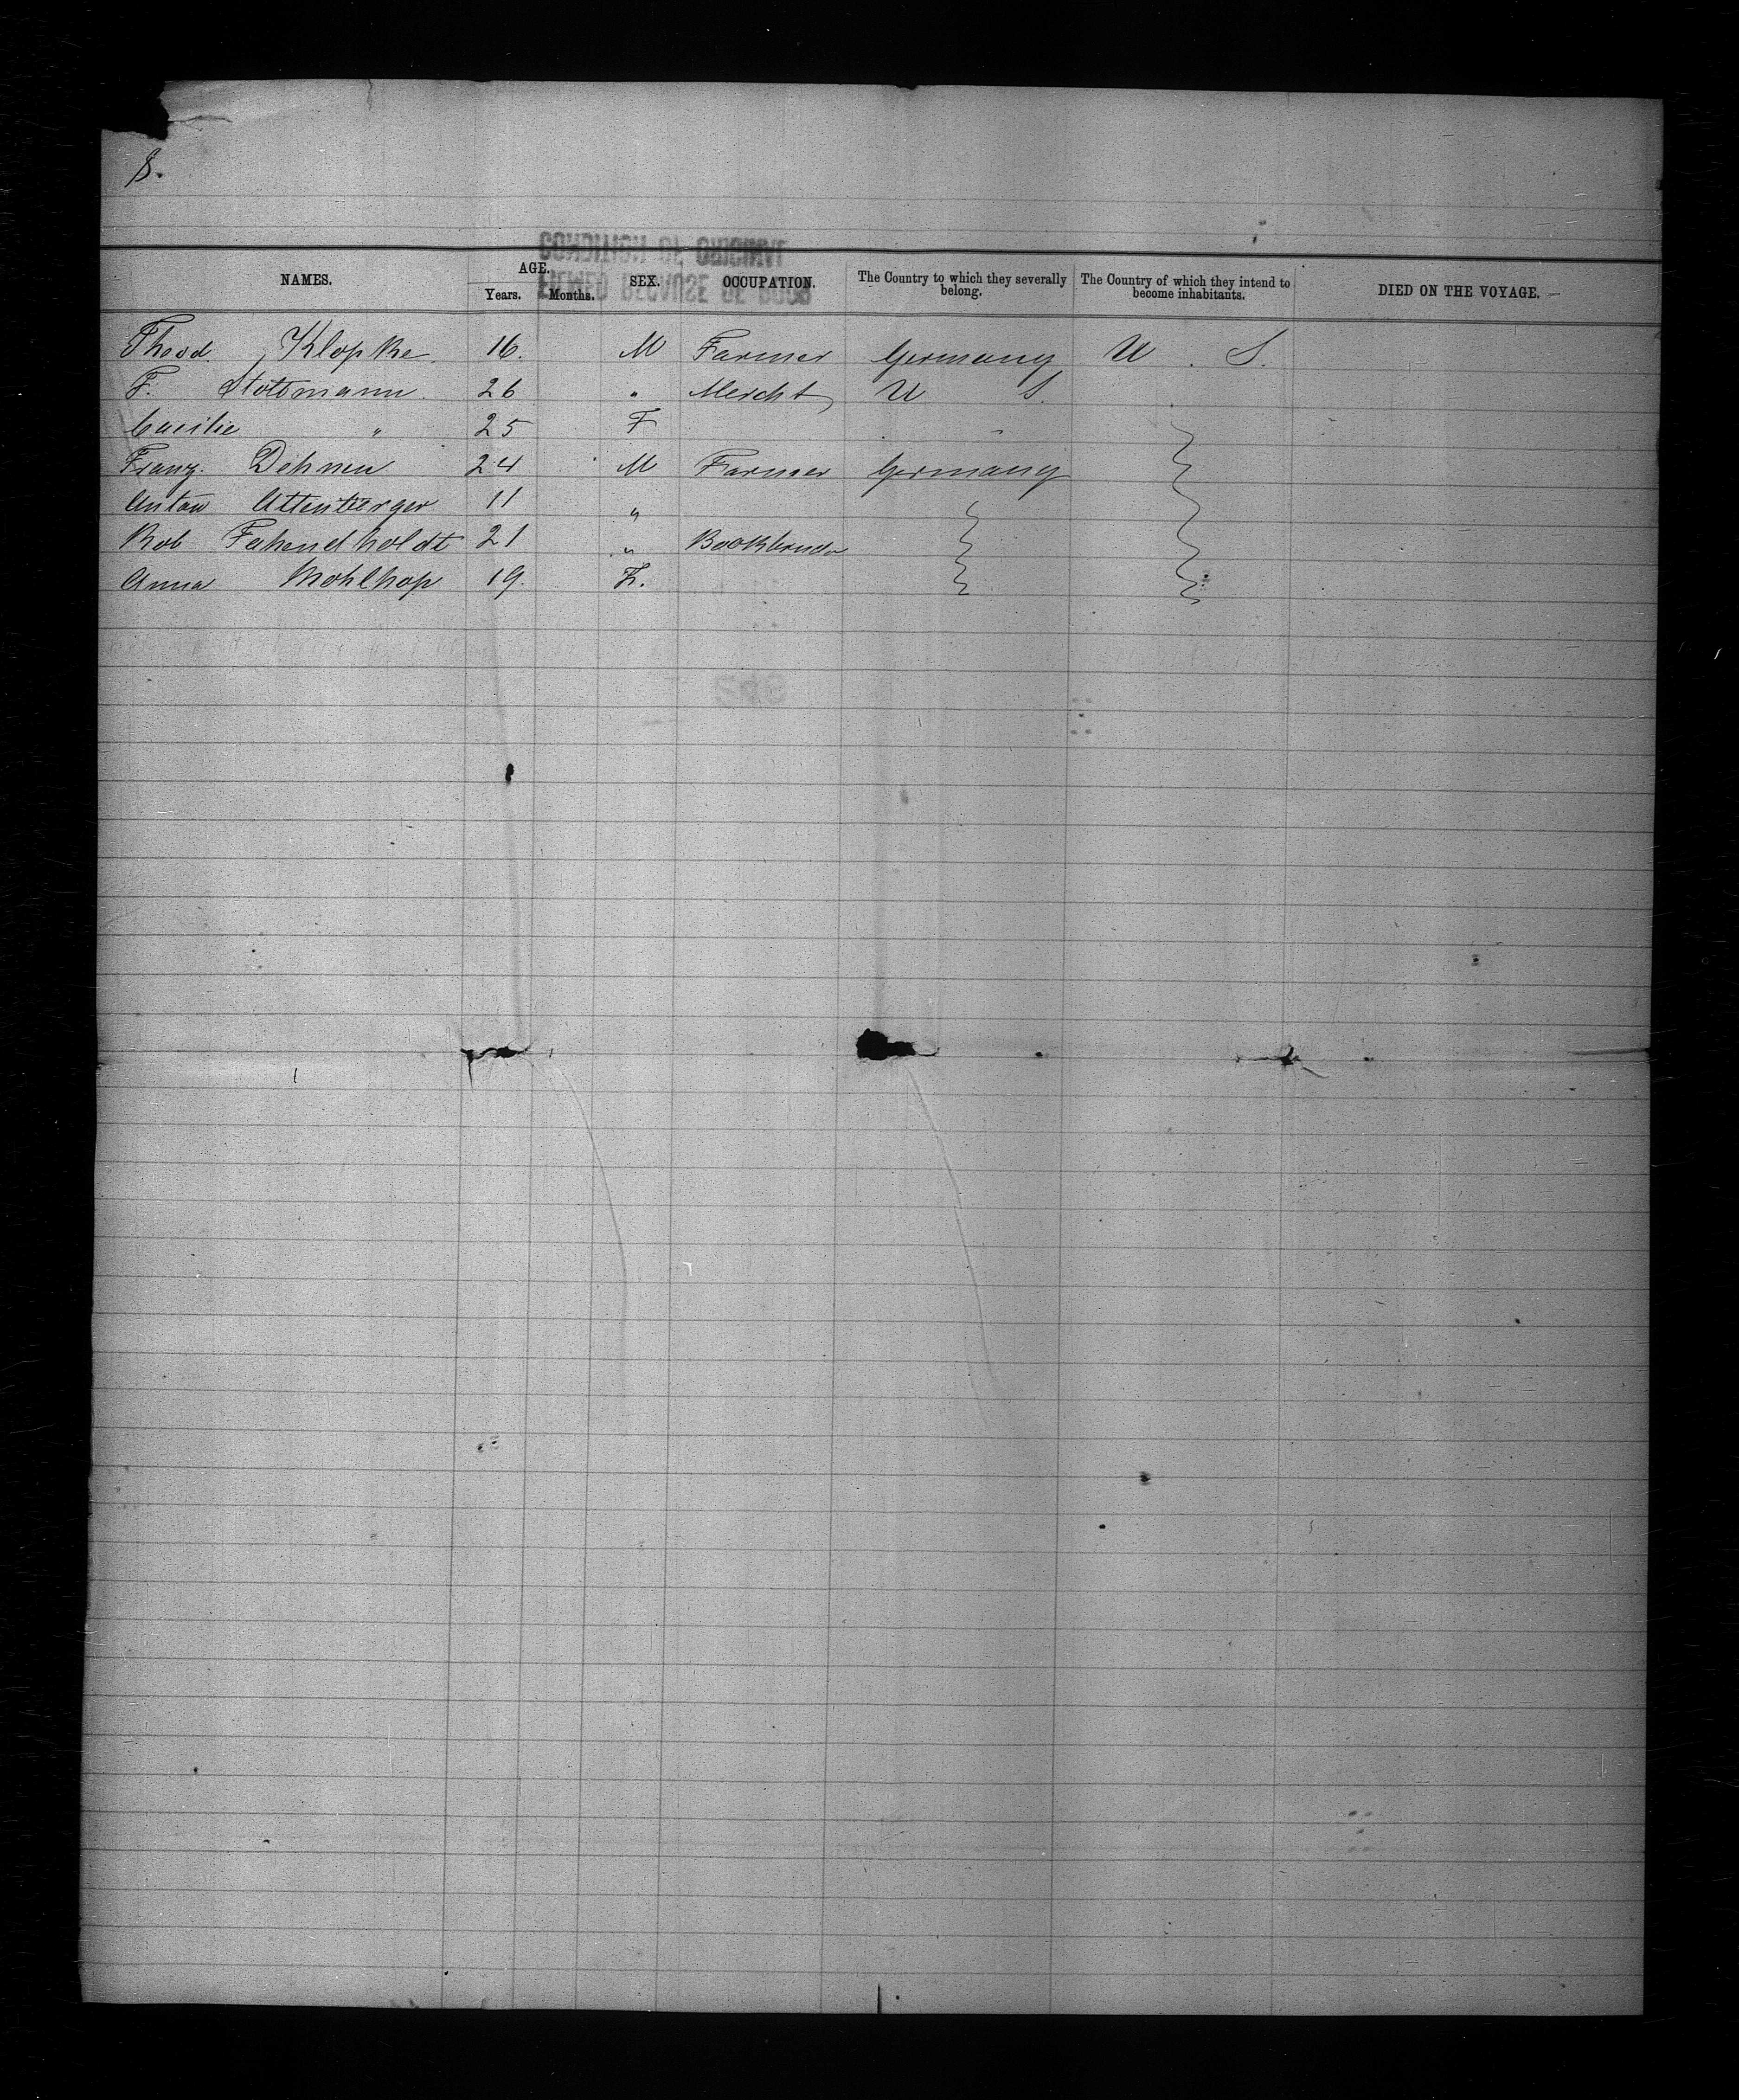 8.
NAMES. AGE. Years. Months. SEX. OCCUPATION. The Country to which they severally belong. The Country of which they intend to become inhabitants. DIED ON THE VOYAGE.
Theod Klopke. 16. M Farmer Germany U. S.
F. Stottmann. 26 " Mercht U S.
Caecilie " 25 F "
Franz. Dehnen 24 M Farmer Germany
Anton Attenberger 11 "
Rob Fahendholdt 21 " Bookbinder
Anna Mohlhop 19. F.